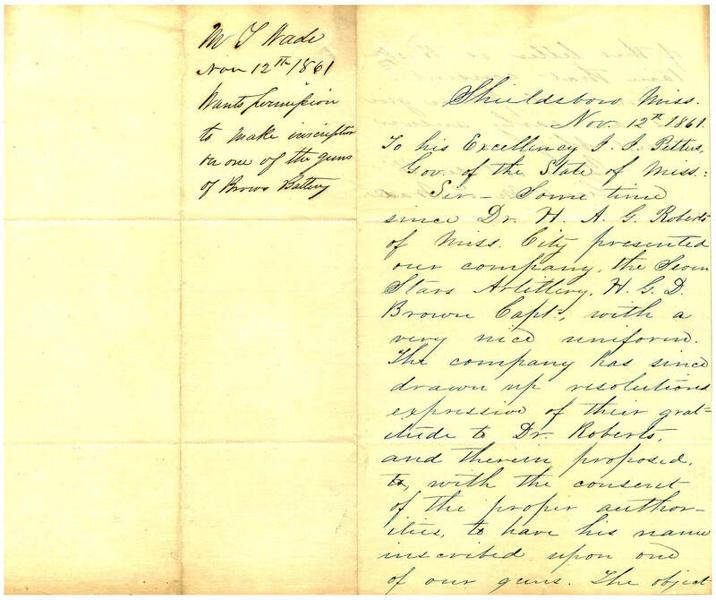 M T Wade
Nov 12th 1861
Wants permission
to make inscription
on one of the guns
of Brown Battery
Shieldsboro Miss.
Nov. 12th 1861.
To his Excellency J. J. Pettus,
Gov. of the State of Miss.:
Sir — Some time
since Dr. H. A. G. Roberts
of Miss. City presented
our company, the Seven
Stars Artillery, H. G. D.
Brown Capt., with a
very nice uniform.
The company has since
drawn up resolutions
expressive of their grat=
itude to Dr. Roberts,
and therein proposed,
with the consent
of the proper author=
ities, to have his name
inscribed upon one
of our guns. The object